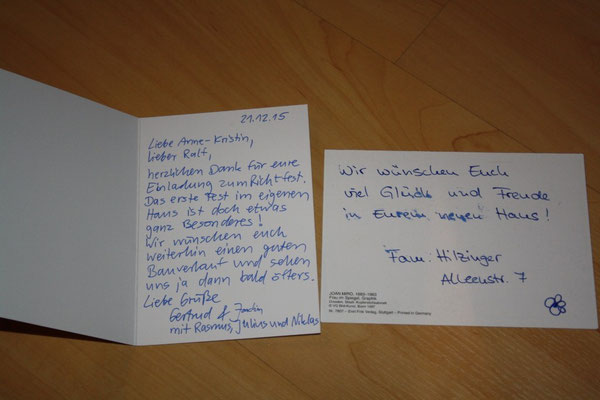 21.12.15
Liebe Anne-Kristin,
lieber Ralf,
herzlichen Dank für eure
Einladung zum Richtfest.
Das erste Fest im eigenen
Haus ist doch etwas
ganz Besonderes!
Wir wünschen euch
weiterhin einen guten
Bauverlauf und sehen
uns ja dann bald öfters.
Liebe Grüße
Gertrud &
mit Rasmus, Julius und Niklas
Wir wünschen Euch
viel Glück und Freude
in Eurem neuen Haus!
Fam. Hilzinger
Alleenstr. 7
JOAN MIRÓ, 1893-1983
Frau im Spiegel, Graphik